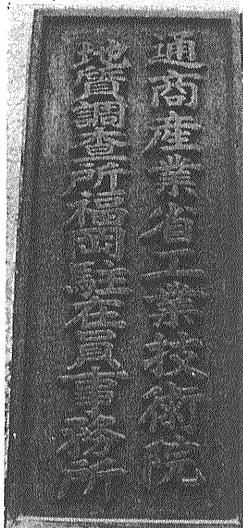 通商産業省工業技術院
地質調査所福岡駐在員事務所